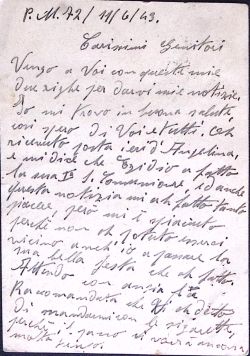 P.M. 72/ 11/6/43.
Carissimi Genitori
Vengo a Voi con queste mie
due righe per darvi mie notizie.
Io mi trovo in buona salute,
così spero di Voi e tutti. Oh
ricevuto posta ieri d'Angelina,
e mi dice che Egidio a fatto
la sua Iª S. Comunione, ed anche
questa notizia mi ah fatto tanto
piacere, però mi è spiaciuto
perchè non oh potuto esserci
vicino anch'io a passare la
sua bella festa che ah fatto.
Attendo con ansia la
Raccomandata che oh detto
di mandarmi con le sigarette,
perchè
molto